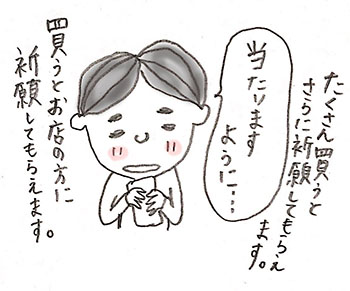 たくさん買うと
さらに祈願してもらえ
ます。
当たります
ように…
買うとお店の方に
祈願してもらえます。